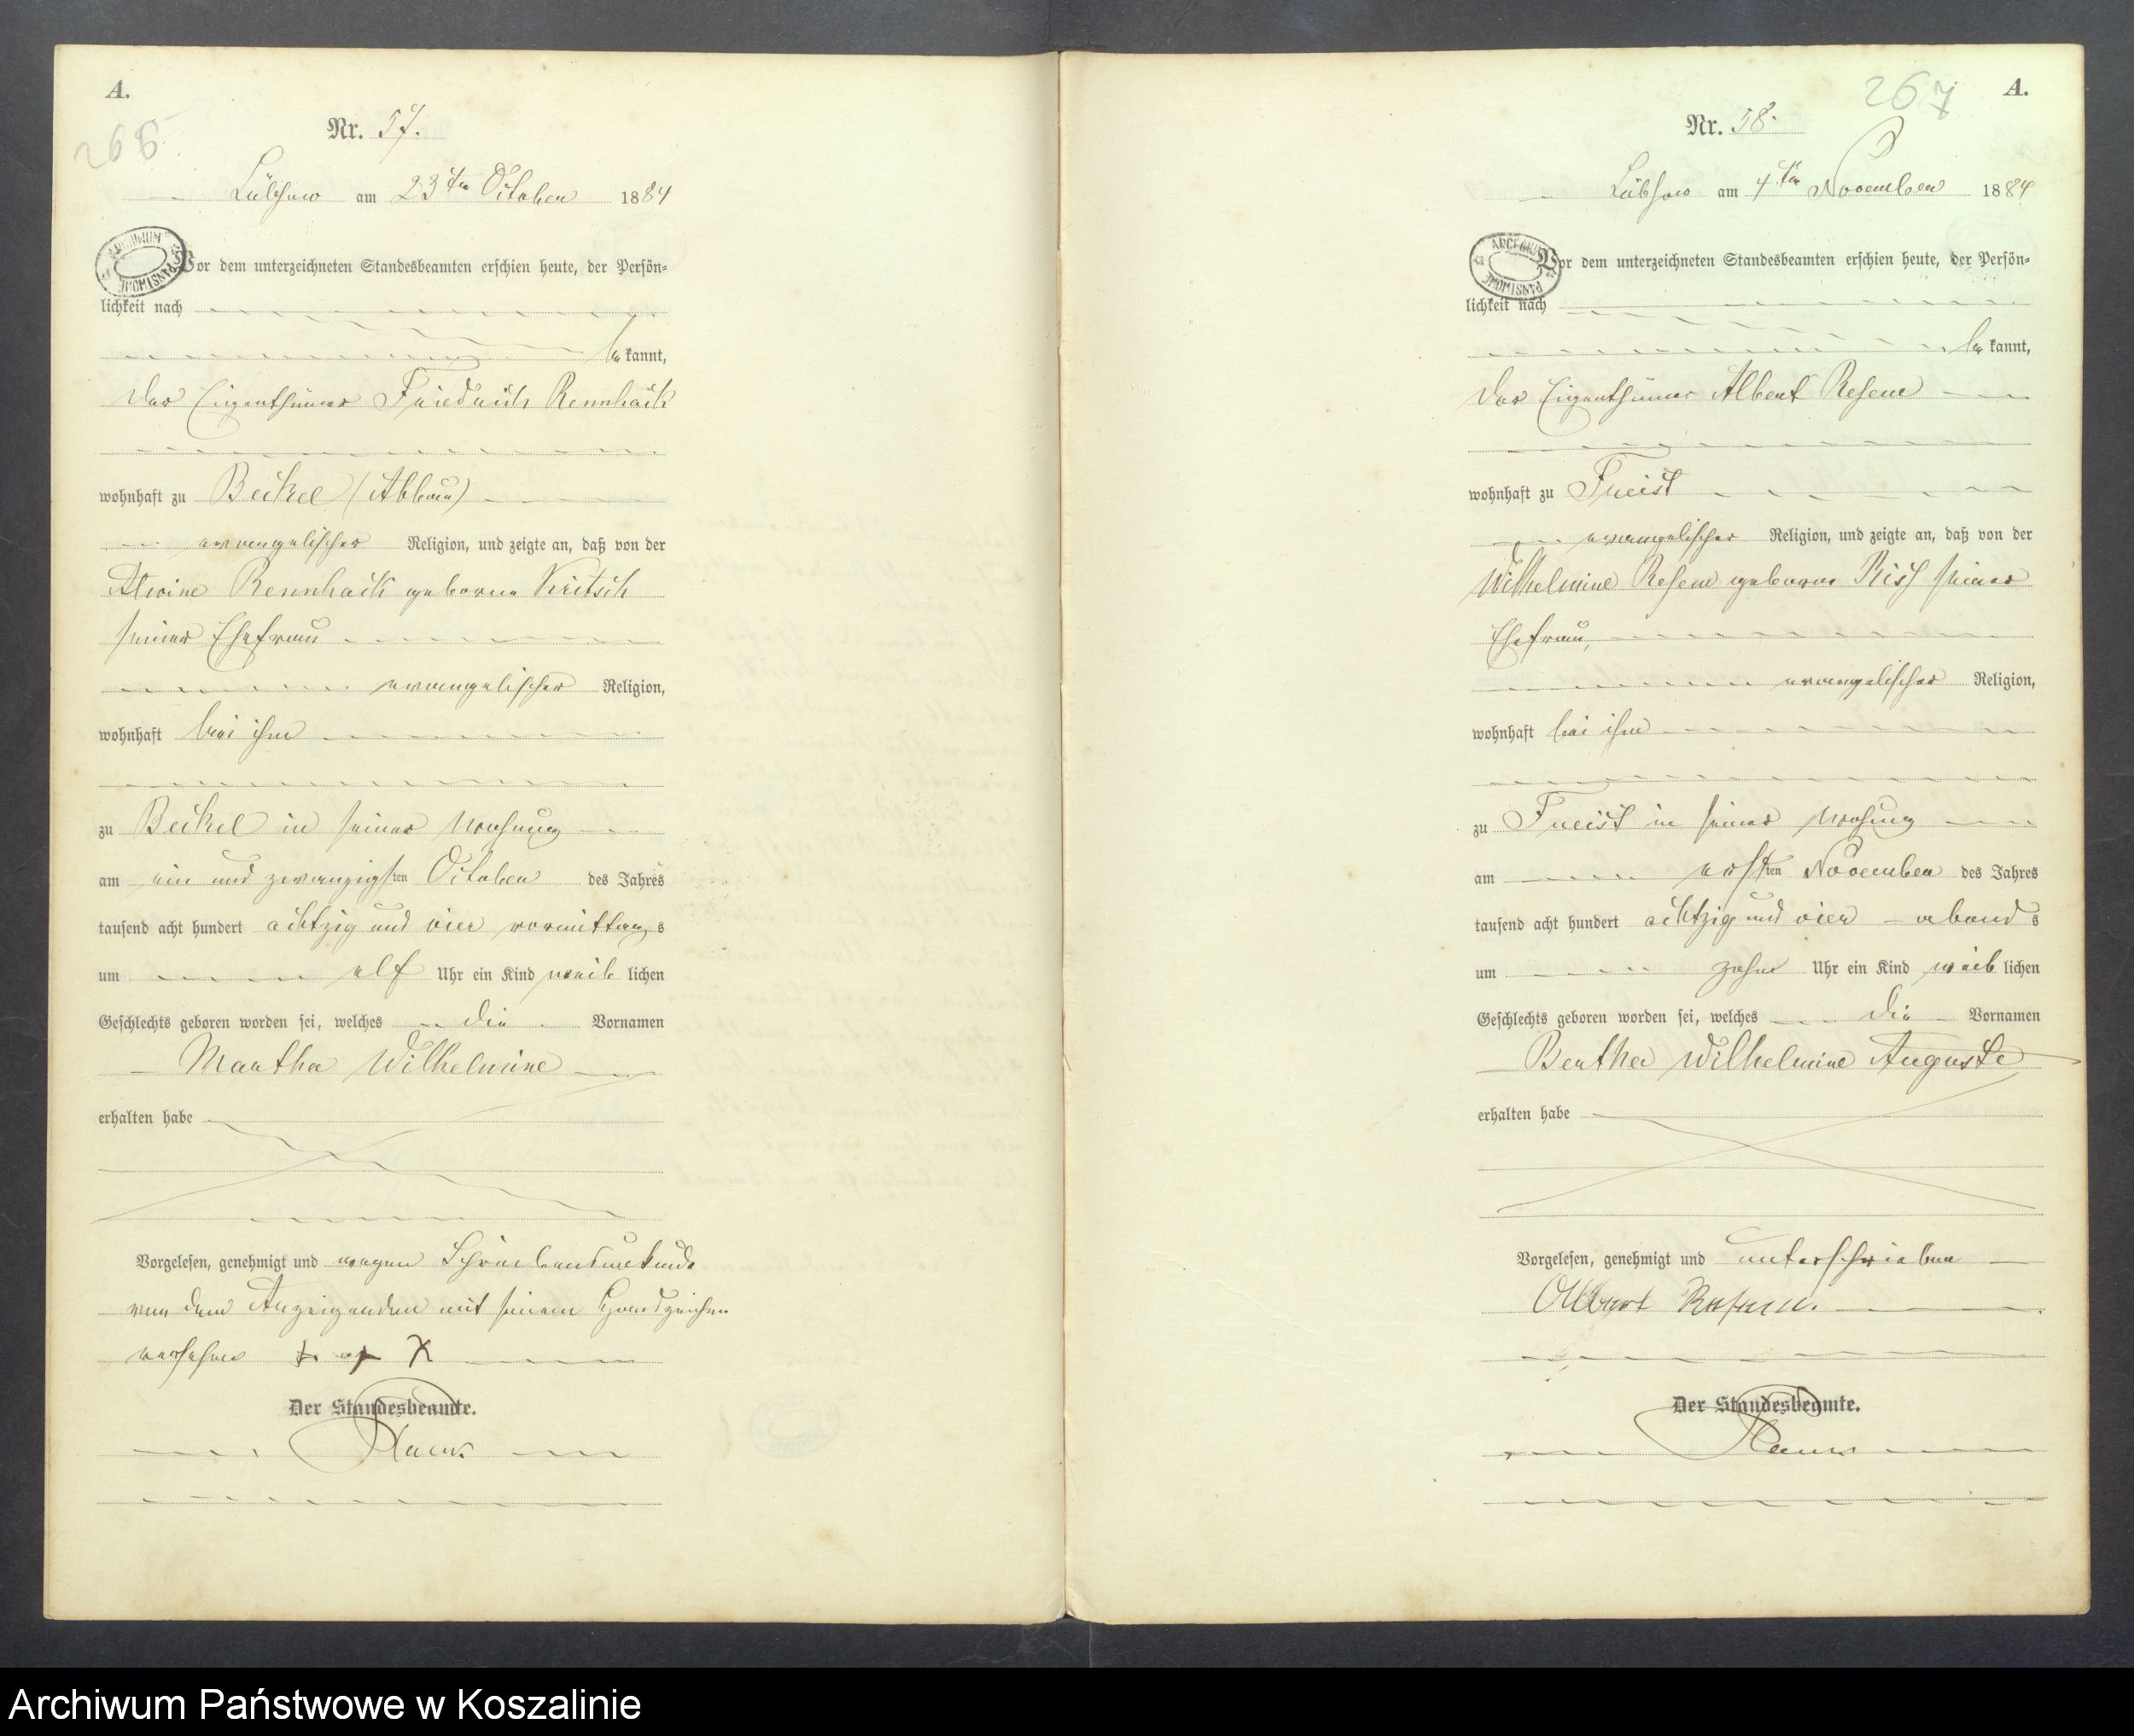 A.
266
Nr. 57.
Lübsow am 23ten October 1884
Vor dem unterzeichneten Standesbeamten erschien heute, der Persön=
lichkeit nach
be kannt,
der Eigenthümer Friedrich Rennhack
wohnhaft zu Beckel (Abbau)
evangelischer Religion, und zeigte an, daß von der
Alwine Rennhack geborene Kritsch
seiner Ehefrau
evangelischer Religion,
wohnhaft bei ihm
zu Beckel in seiner Wohnung
am ein und zwanzigsten October des Jahres
tausend acht hundert achtzig und vier vormittags
um elf Uhr ein Kind weiblichen
Geschlechts geboren worden sei, welches die Vornamen
Martha Wilhelmine
erhalten habe
Vorgelesen, genehmigt und wegen Schreibensunkunde
von dem Anzeigenden mit seinem Handzeichen
versehen + + X
Der Standesbeamte.
A.
267
Nr. 58.
Lübsow am 4ten November 1884
Vor dem unterzeichneten Standesbeamten erschien heute, der Persön=
lichkeit nach
be kannt,
der Eigenthümer Albert Resem
wohnhaft zu Freist
evangelischer Religion, und zeigte an, daß von der
Wilhelmine Resem geborene seiner
Ehefrau,
evangelischer Religion,
wohnhaft bei ihm
zu Freist in seiner Wohnung
am ersten November des Jahres
tausend acht hundert achtzig und vier abends
um zehn Uhr ein Kind weiblichen
Geschlechts geboren worden sei, welches die Vornamen
Bertha Wilhelmine Auguste
erhalten habe
Vorgelesen, genehmigt und unterschrieben
Albert Resem.
Der Standesbeamte.
ARCHIWUM PAŃSTWOWE
ARCHIWUM PAŃSTWOWE
Archiwum Państwowe w Koszalinie